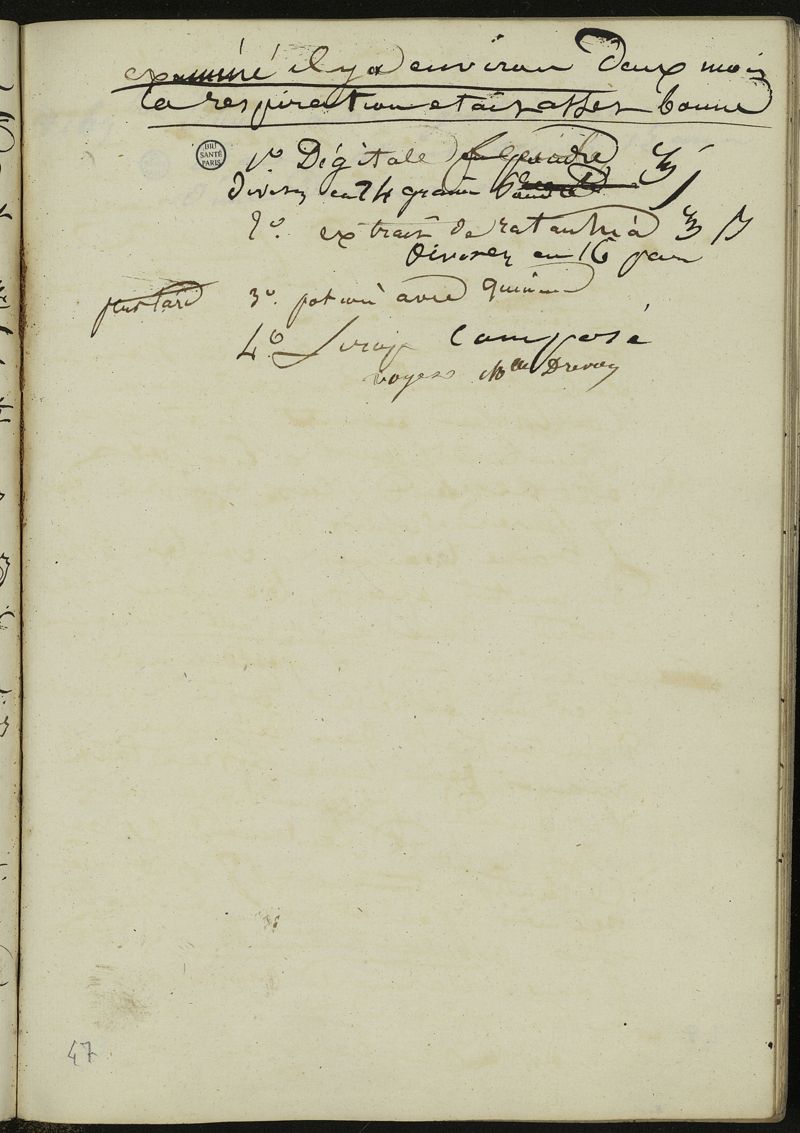 examiné il y a environ deux mois
la respiration etait assez bonne
BIU
SANTÉ
PARIS
1º Digitale en poudre
divisez en 24 grains
2º. extrait de ratanhia
divisez en 16 par
plus tard 3º. potion avec quinine
4º. Sirop Composé
voyez Mlle
47